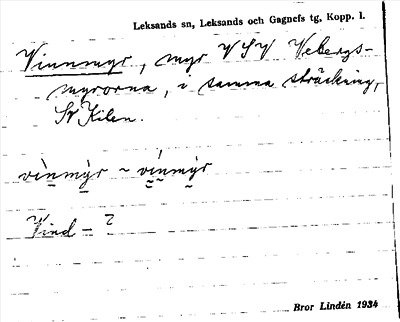 Leksands sn, Leksands och Gagnefs tg, Kopp. l.
Vinnmyr, myr VSV Vebergs-
myrorna, i samma sträckning,
SV Kilen.
vìnmỳr ~ vínmỳr
Vind- ?
Bror Lindén 1934